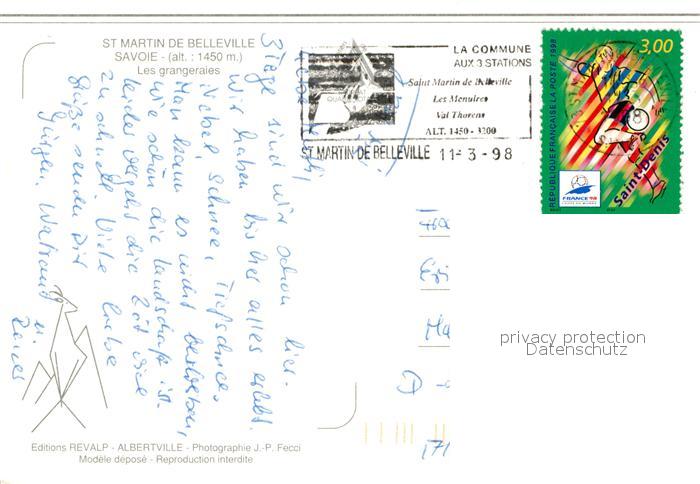 ST MARTIN DE BELLEVILLE
SAVOIE - (alt. : 1450 m.)
Les grangeraies
LA COMMUNE
AUX 3 STATIONS
Saint Martin de Belleville
Les Menuires
Val Thorens
ALT. 1450 - 3200
ST MARTIN DE BELLEVILLE 11-3-98
RÉPUBLIQUE FRANÇAISE LA POSTE 1998
3,00
8
Saint-Denis
FRANCE 98
COUPE DU MONDE
3 Tage sind wir schon hier.
Wir haben bisher alles erlebt.
Nebel Schnee, Tiefschnee.
Man kann es nicht beschreiben,
wie schön die Landschaft ist.
Leider vergeht die Zeit viel
zu schnell. Viele liebe
Grüße senden Dir
Jürgen, Waltraud
u.
privacy protection
Datenschutz
Editions REVALP - ALBERTVILLE - Photographie J.-P. Fecci
Modèle déposé - Reproduction interdite